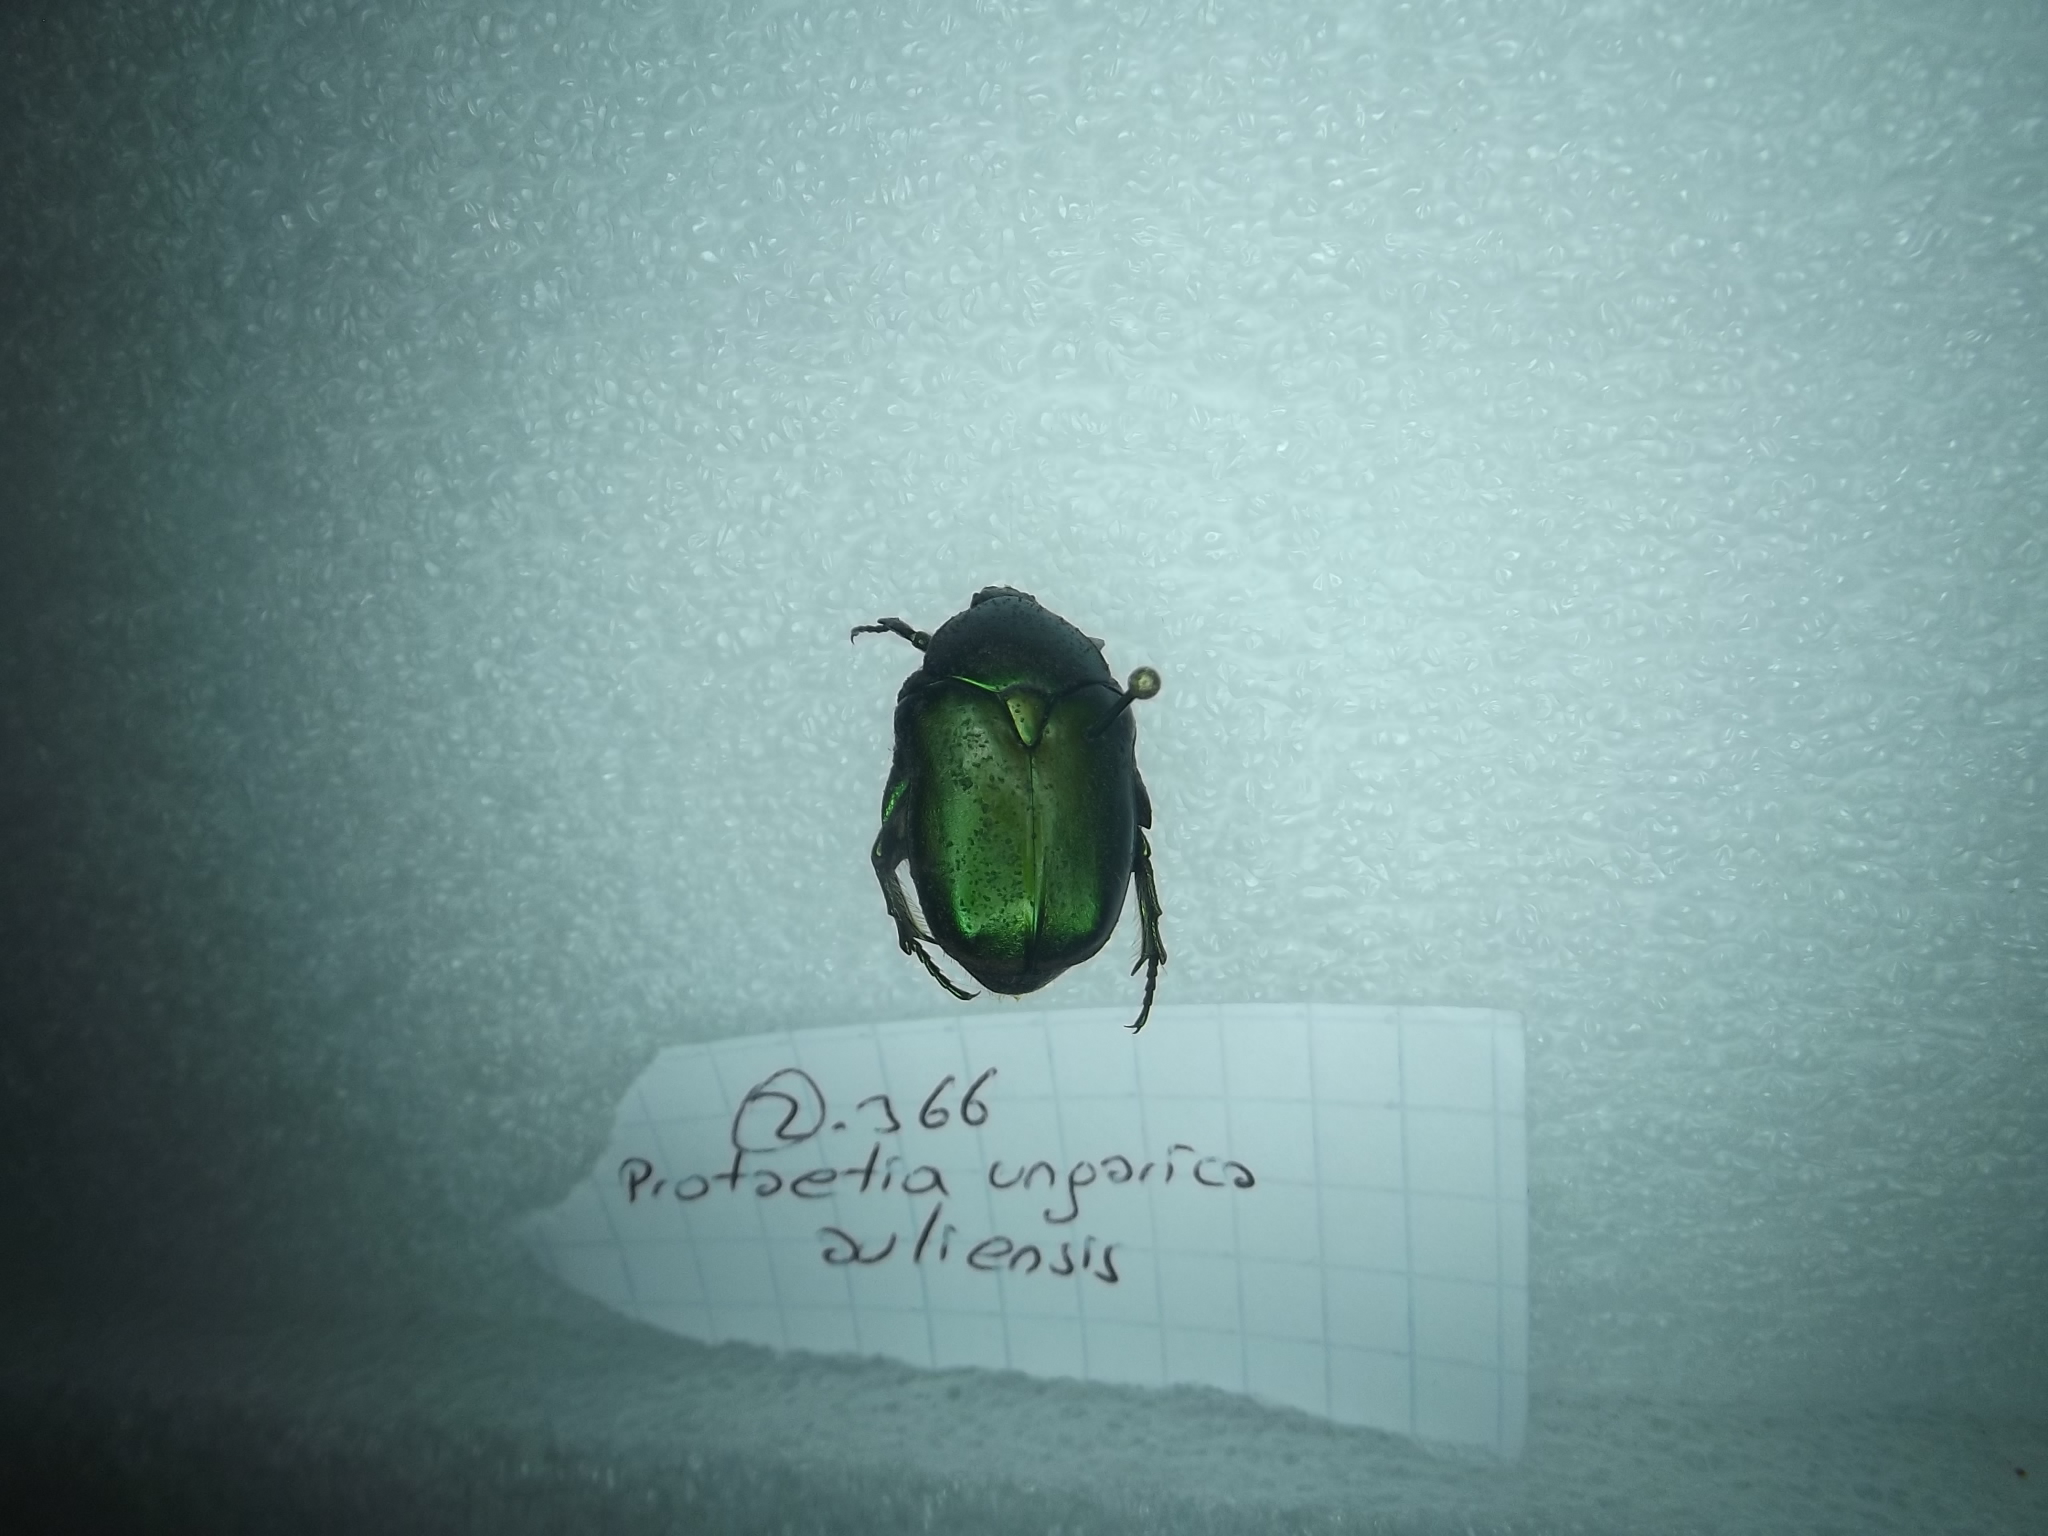 2.366
Protaetia ungarica
auliensis